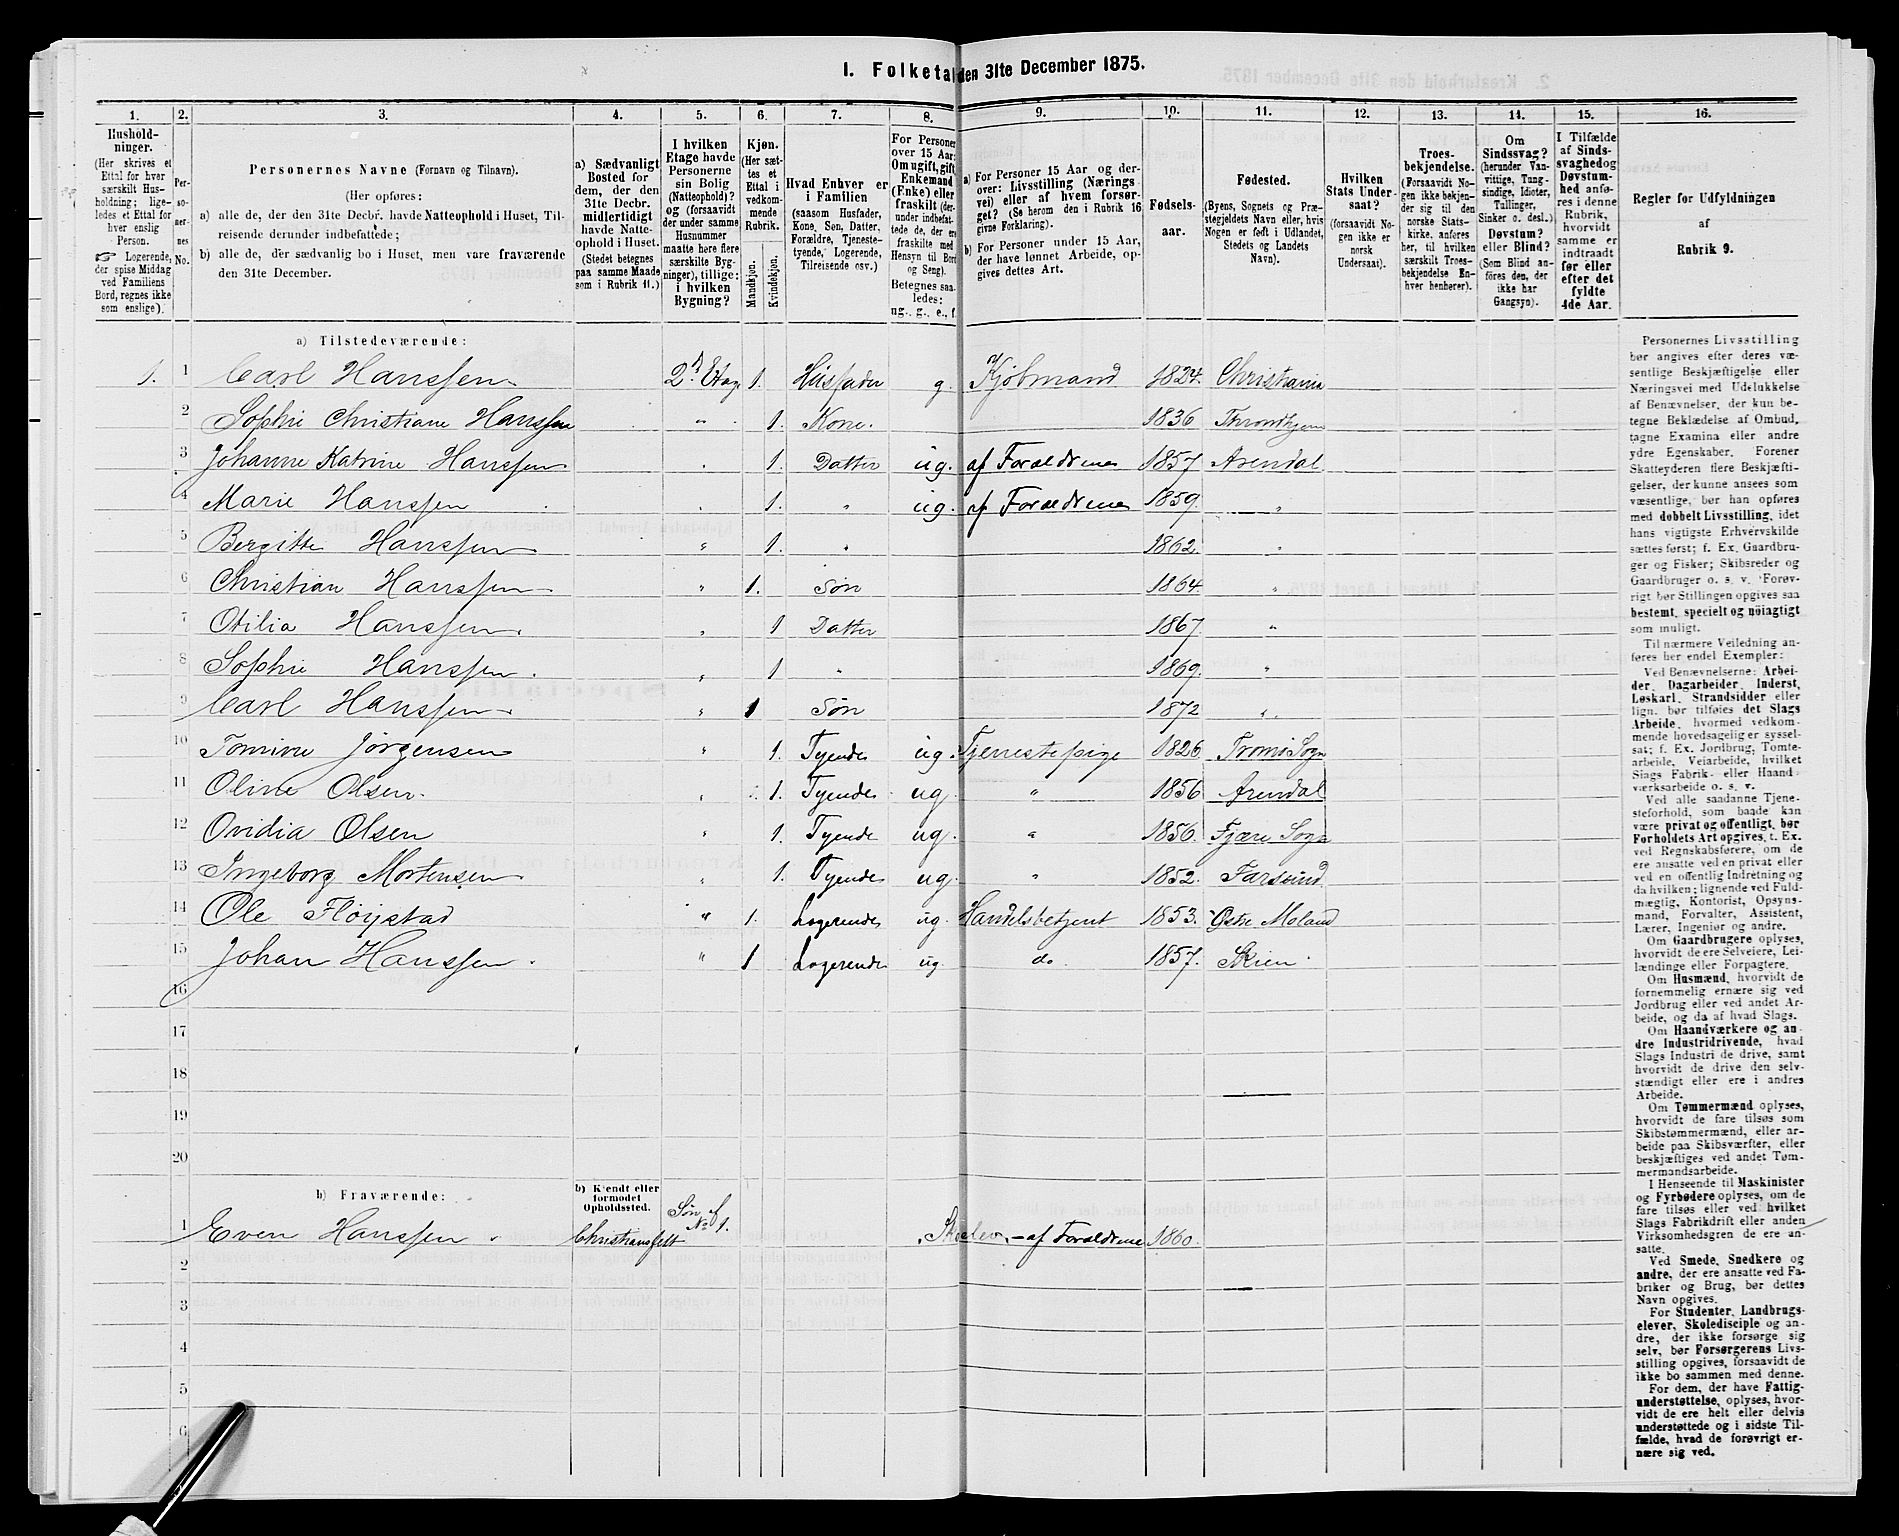 1. Folketal den 31te December 1875.
1. 2. 3. 4. 5. 6. 7. 8. 9. 10. 11. 12. 13. 14. 15. 16.
Hushold-
ninger.
(Her skrives et
Ettal for hver
særskilt Hus-
holdning; lige-
ledes et Ettal for
hver enslig
Person.
☞ Logerende,
der spise Middag
ved Familiens
Bord, regnes ikke
som enslige).
Per-
so-
ner-
nes
No.
Personernes Navne (Fornavn og Tilnavn).
(Her opføres:
a) alle de, der den 31te Decbr. havde Natteophold i Huset, Til-
reisende derunder indbefattede;
b) alle de, der sædvanlig bo i Huset, men vare fraværende
den 31te December.
a) Sædvanligt
Bosted for
dem, der den
31te Decbr.
midlertidigt
havde Natte-
ophold i Huset.
(Stedet betegnes
paa samme Maade
som i Rubrik 11.)
I hvilken
Etage havde
Personerne
sin Bolig
(Natteophold)?
og (forsaavidt
der under samme
Husnummer
maatte høre flere
særskilte Byg-
ninger), tillige:
i hvilken
Bygning?
Kjøn.
(Her sæt-
tes et
Ettal i
vedkom-
mende
Rubrik.
Mandkjøn.
Kvindekjøn.
Hvad Enhver er
i Familien
(saasom Husfader,
Kone, Søn, Datter,
Forældre, Tjeneste-
tyende, Logerende,
Tilreisende osv.)
For Personer
over 15 Aar:
Om ugift, gift,
Enkemand
(Enke) eller
fraskilt (der-
under indbefat-
tede de, der ere
fraskilte med
Hensyn til Bord
og Seng).
Betegnes saa-
ledes:
ug., g., e., f.
a) For Personer 15 Aar og der-
over: Livsstilling (Nærings-
vei) eller af hvem forsør-
get? (Se herom den i Rubrik 16
givne Forklaring).
b) For Personer under 15 Aar,
der have lønnet Arbeide, op-
gives dettes Art.
Fødsels-
aar.
Fødested.
(Byens, Sognets og Præ-
stegjeldets Navn eller, hvis
Nogen er født i Udlandet,
Stedets og Landets
Navn).
Hvilken
Stats Under-
saat?
(forsaavidt No-
gen ikke er
norsk
Undersaat).
Troes-
bekjendelse.
(Forsaavidt No-
gen ikke bekjen-
der sig til den
norske Stats-
kirke, anføres
her, til hvilken
særskilt Troes-
bekjendelse En-
hver henhører).
Om
Sindssvag?
(herunder Van-
vittige, Tung-
sindige, Idioter,
Tullinger,
Sinker o. desl.)
Døvstum?
eller Blind?
(Som Blind an-
føres den, der
ikke har
Gangsyn).
I Tilfælde
af Sinds-
svaghed og
Døvstum-
hed anfø-
res i denne
Rubrik,
hvorvidt
samme er
indtraadt
før eller
efter det
fyldte
4de Aar.
Regler for Udfyldningen
af
Rubrik 9.
a) Tilstedeværende:
1. 1 Carl Hanssen 2d Etage 1. Husfader g. Kjøbmand 1824. Christiania
2 Sophie Christiane Hanssen " 1. Kone. 1836 Throndhjem
3 Johanne Katrine Hanssen " 1. Datter ug. af Forældrene 1857 Arendal
4 Marie Hanssen 1. " ug. af Forældrene 1859. "
5 Bergitte Hanssen " 1. " 1862. "
6 Christian Hanssen " 1. Søn 1864. "
7 Otilia Hanssen. " 1 Datter 1867. "
8 Sophie Hanssen. " 1 " 1869. "
9 Carl Hanssen " 1 Søn 1872 "
10 Tomine Jørgensen " 1. Tyende ug. Tjenestepige 1826 Tromø Sogn
11 Oline Olsen. " 1. Tyende ug " 1856 Arendal
12 Ovidia Olsen " 1. Tyende ug. " 1856. Fjære Sogn
13 Ingeborg Mortensen " 1. Tyende ug. " 1852. Farsund
14 Ole Fløystad " 1. Logerende ug. Handelsbetjent 1853. Østre Moland
15 Johan Hanssen. " 1 Logerende ug. do. 1857. Skien.
16
17
18
19
20
b) Fraværende:
b) Kjendt eller
formodet
Opholdssted.
1 Even Hanssen Christiansfelt Søn af No 1. af Forældrene 1860.
2
3
4
5
6
Personernes Livsstilling
bør angives efter deres væ-
sentlige Beskjæftigelse eller
Næringsvei med Udelukkelse
af Benævnelser, der kun be-
tegne Beklædelse af Ombud,
tagne Examina eller andre
ydre Egenskaber. Forener
Skatteyderen flere Beskjæfti-
gelser, der kunne ansees som
væsentlige, bør han opføres
med dobbelt Livsstilling, idet
hans vigtigste Erhvervskilde
sættes først; f. Ex. Gaardbru-
ger og Fisker; Skibsreder og
Gaardbruger o. s. v. Forøv-
rigt bør Stillingen opgives saa
bestemt, specielt og nöiagtigt
som muligt.
Til nærmere Veiledning an-
føres her endel Exempler:
Ved Benævnelserne: Arbei-
der, Dagarbeider, Inderst,
Løskarl, Strandsidder eller
lign. bør tilføies det Slags
Arbeide, hvormed vedkom-
mende hovedsagelig er syssel-
sat; f. Ex. Jordbrug, Tomte-
arbeide, Veiarbeide, hvilket
Slags Fabrik- eller Haand-
værksarbeide o. s. v.
Ved alle saadanne Tjene-
steforhold, som baade kan
være privat og offentligt, bør
Forholdets Art opgives, t. Ex.
ved Regnskabsførere, om de
ere ansatte ved en privat eller
ved en offentlig Indretning og
da hvilken; lignende ved Fuld-
mægtig, Kontorist, Opsyns-
mand, Forvalter, Assistent,
Lærer, Ingeniør og andre.
Om Gaardbrugere oplyses,
hvorvidt de ere Selveiere, Lei-
lændinge eller Forpagtere.
Om Husmænd, hvorvidt de
fornemmelig ernære sig ved
Jordbrug eller ved andet Ar-
beide, og da af hvad Slags.
Om Haandværkere og an-
dre Industridrivende, hvad
Slags Industri de drive, samt
hvorvidt de drive den selv-
stændigt eller ere i andres
Arbeide.
Om Tømmermænd oplyses,
hvorvidt de fare tilsøs som
Skibstømmermænd, eller ar-
beide paa Skibsværfter, eller
beskjæftiges ved andet Tøm-
mermandsarbeide.
I Henseende til Maskinister
og Fyrbødere oplyses, om de
fare tilsøs eller ved hvilket
Slags Fabrikdrift eller anden
Virksomhedsgren de ere an-
satte.
Ved Smede, Snedkere og
andre, der ere ansatte ved Fa-
briker og Brug, bør dettes
Navn opgives.
For Studenter, Landbrugs-
elever, Skoledisciple og an-
dre, der ikke forsørge sig
selv, bør Forsørgerens Livs-
stilling opgives, forsaavidt de
ikke bo sammen med denne.
For dem, der have Fattig-
understøttelse, oplyses, hvor-
vidt de ere helt eller delvis
understøttede og i sidste Til-
fælde, hvad de forøvrigt er-
nære sig ved.